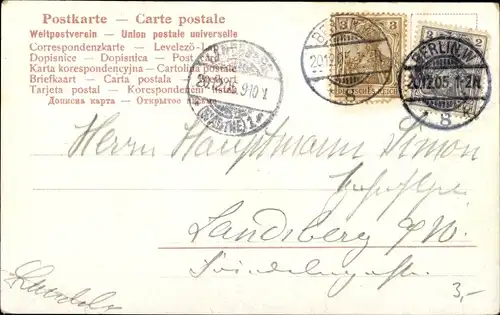 Postkarte — Carte postale
Weltpostverein — Union postale universelle
Correspondenzkarte — Levelező-L
Dopisnice — Dopisnica — Post card
Karta korespondencyjna — Cartolina postale
Briefkaart — Carta postala
Tarjeta postal — Korespondeni listek
Дописна карта — Открытое письмо
BERLIN W.
20.12.05
8
3 3
DEUTSCHES REICH
2 2
BERLIN W.
20.12.05 1-2N.
8 k
LANDSBERG
(WARTHE) 1
9-10 V
Herrn Hauptmann Simon
Landsberg a/W.
3,-